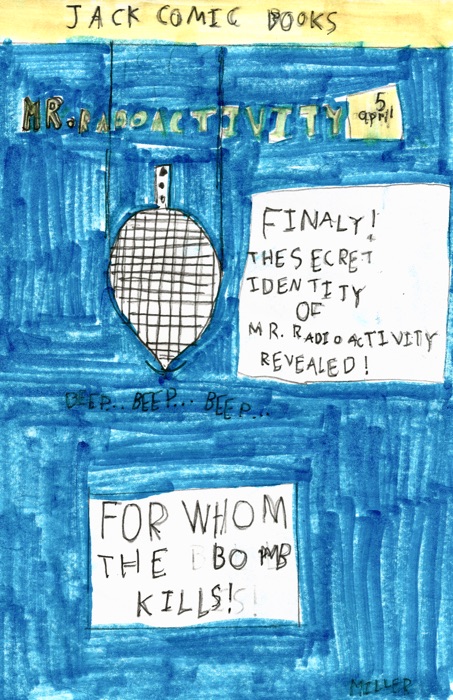 JACK COMIC BOOKS
MR. RADOACTIVITY
5
april
FINALY!
THE SECRET
IDENTITY
OF
MR. RADIOACTIVITY
REVEALED!
BEEP.. BEEP... BEEP...
FOR WHOM
THE BOMB
KILLS!
MILLER